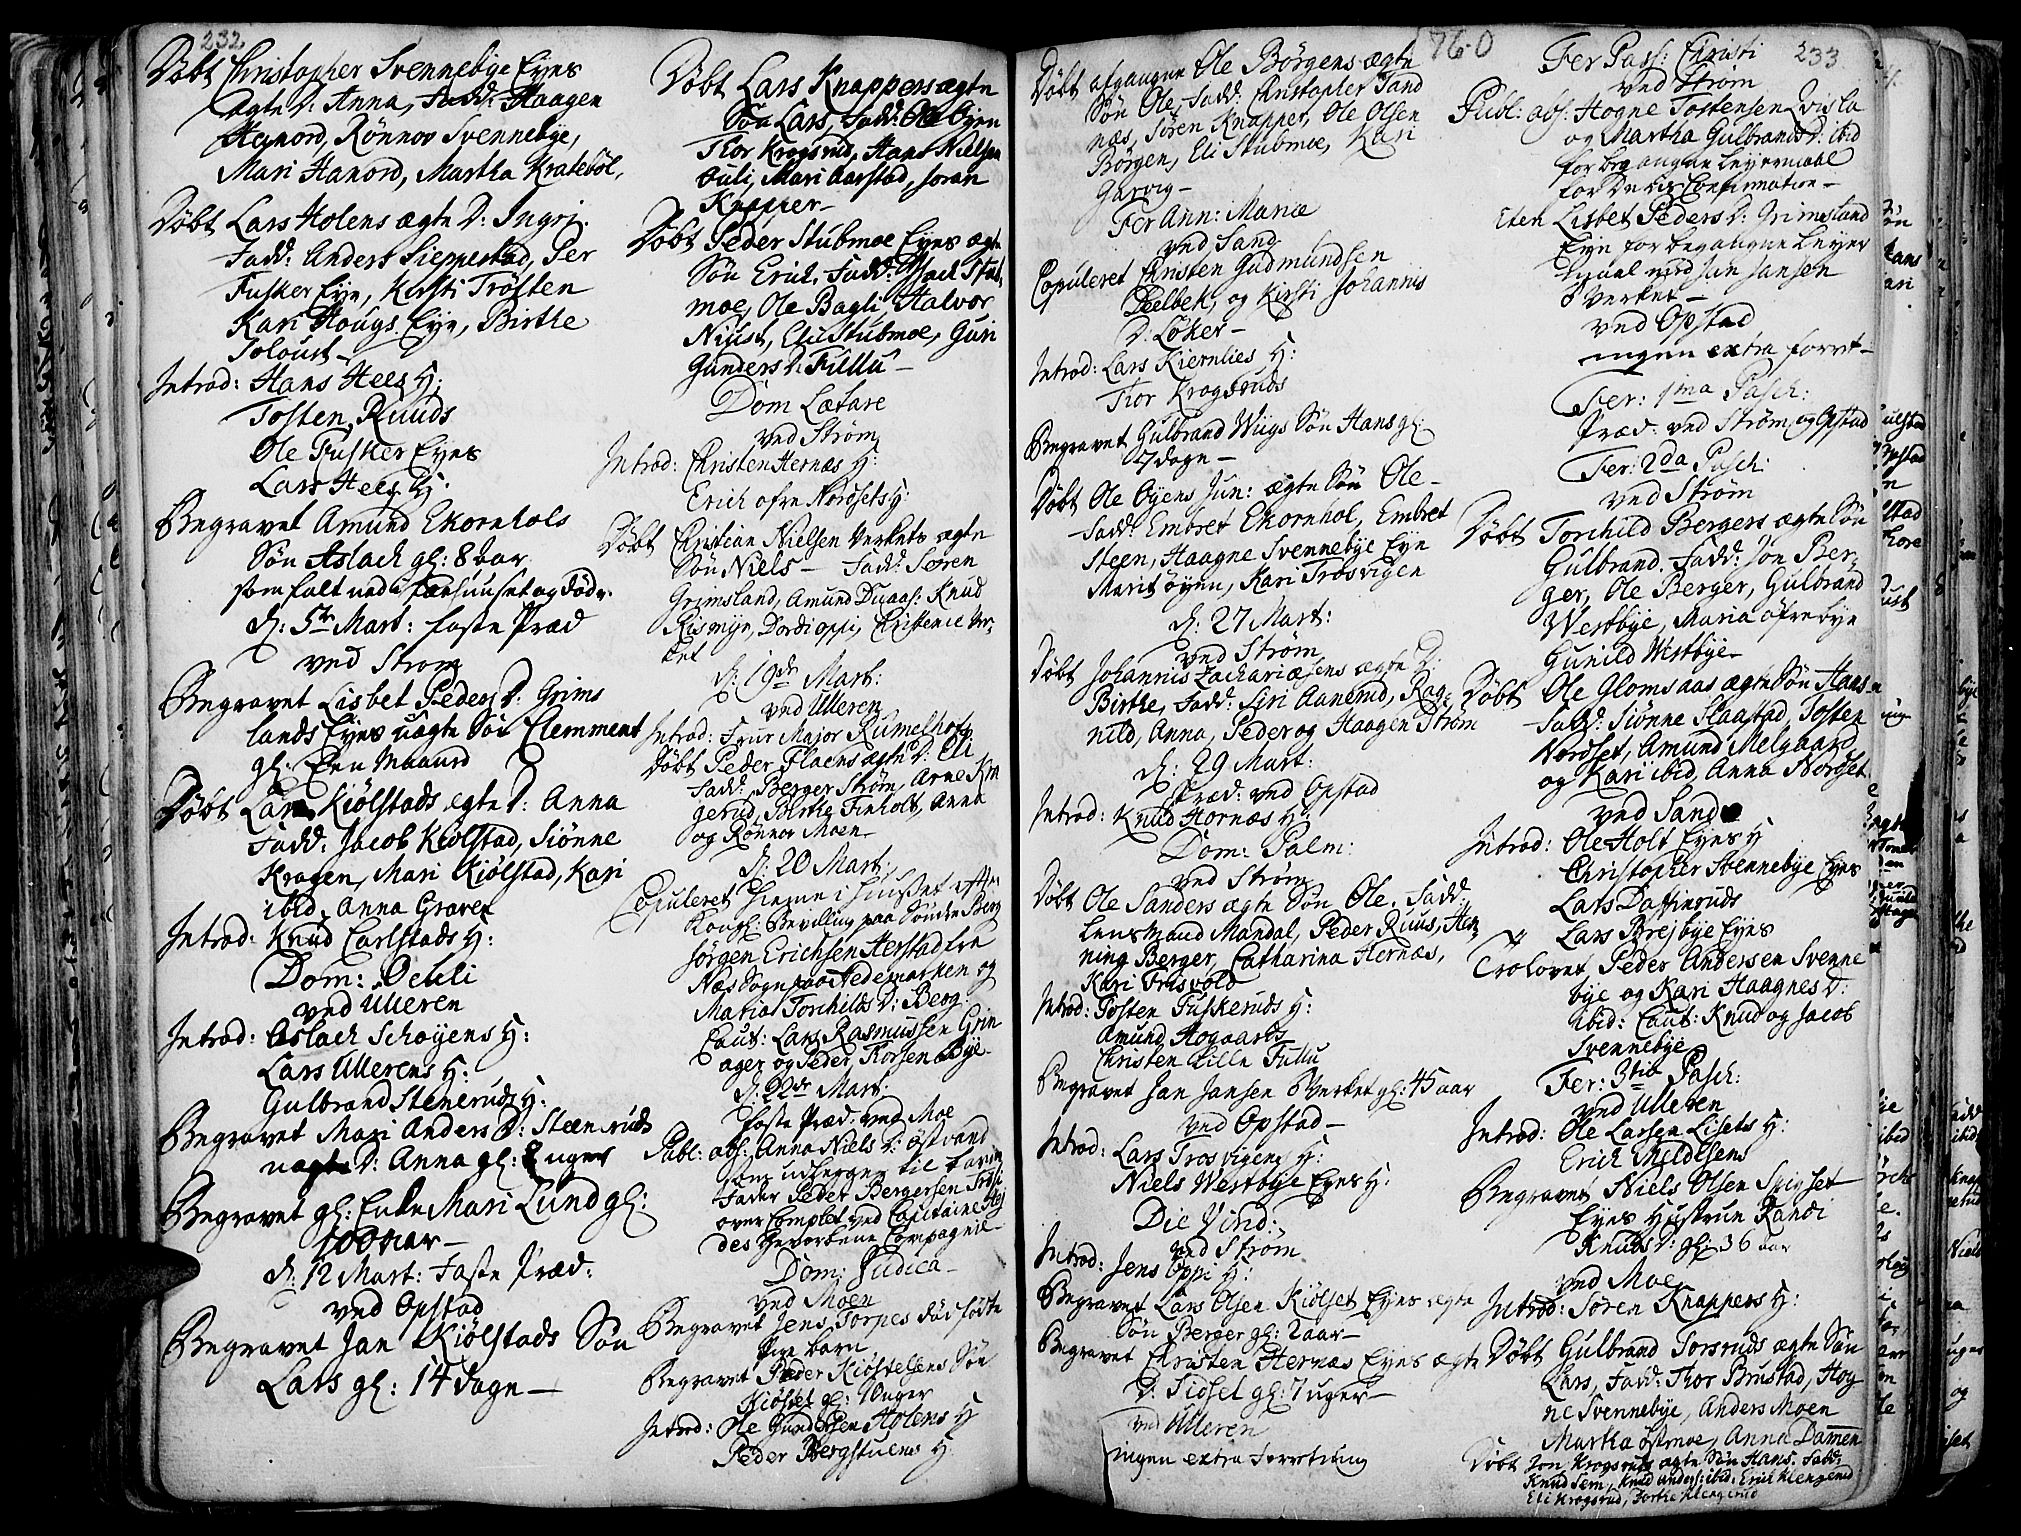 232
Døbt Christopher Svennebye Eyes
ægte D: Anna, Fadd: Haagen
Hanord, Rønnov Svennebye,
Mari Hanord, Martha Kratebøl,
Døbt Lars Holens ægte D: Ingri.
Fadd: Anders Sieppestad, Per
Fusker Eye, Kirsti Trøften
Kari Hougs Eye, Birthe
Introd: Hans Hees H:
Tosten Ruuds
Ole Fusker Eyes
Lars Hees H:
Begravet Amund Ekornhols
Søn Aslach gl: 8 aar
som falt ned i og døde.
d: 5te Mart: faste Præd
ved Strøm
Begravet Lisbet Peders D: Grims
lands Eyes uægte Søn Clemment
gl: Een Maaned
Døbt Lars Kiølstads ægte D: Anna
Fadd: Jacob Kiølstad, Siønne
Kragen, Mari Kiølstad, Kari
ibid, Anna Graver
Introd: Knud Carlstads H:
Dom: Oculi
ved Ulleren
Introd: Aslach Schøyens H:
Lars Ullerens H:
Gulbrand Steneruds H:
Begravet Mari Anders D: Steensruds
uægte D: Anna gl: 8 uger
Begravet gl: Enke Mari Lund gl:
100 aar
d: 12 Mart: Faste Præd:
ved Opstad
Begravet Jan Kiølstads Søn
Lars gl: 14 dage
Døbt Lars Knappers ægte
Søn Lars, Fadd: Ole Øyen
Thor Krogsrud, Hans Nielsen
Juli, Mari Aarstad, Joran
Knapper
Døbt Peder Stubmoe Eyes ægte
Søn Erich. Fadd: Isach Stub
moe, Ole Bagli, Halvor
Niust, Eli Stubmoe, Guri
Gunders D: Fullu
Dom Lætare
ved Strøm
Introd: Christen Hernæs H:
Erich øfre Nordsets H:
Døbt Christian Nielsen Verkets ægte
Søn Niels Fadd: Søren
Grimsland, Amund Knud
Rismyr, Dordi Oppi, Christence Ver
ket
d: 19de Mart:
ved Ulleren
Introd: Frue Major Rumelhofs
Døbt Peder Flaens ægte D: Eli
Fadd: Berger Strøm, Arne Kra
gerud, Birthe Finholt, Anna
og Rønnov Moen
d: 20 Mart:
Copuleret hieme i huuset efter
Kongl: Bevilling paa Søndre Berg
Jørgen Erichsen Herstad fra
Næs Sogn paa Hedemarken og
Maria Torchilds D: Berg:
Caut: Lars Rasmussen Grin
ager og Peder Thorsen Bye
d: 22de Mart:
faste Præd: ved Moe
Publ: abs: Anna Niels D: Østvand
som udlegger til barne
Fader Peder Bergersen
over Complet ved Capitaine Hej
des Gevorbene Compagnie
Dom: Judica
ved Moen
Begravet Jens Torpes død fødte
Pige barn
Begravet Peder Kiølsetsens Søn
Kiølset gl: 10 uger
Introd: Ole Gundersen Holens H
Peder Bergstuens H
1760
233
Døbt afgangne Ole Børgens ægte
Søn Ole, Fadd: Christopher Sand
næs, Søren Knapper, Ole Olsen
Børgen, Eli Stubmoe, Kari
Garvig
Fer Ann: Mariæ
ved Sand
Copuleret Christen Gudmundsen
Peelbek, og Kirsti Johannis
D: Løker
Introd: Lars Kiernlies H:
Thor Krogsruds
Begravet Gulbrand Wiigs Søn Hans gl:
7 dage
Døbt Ole Øyens Jun: ægte Søn Ole
Fadd: Embret Ekornhol, Embret
Steen, Haagne Svennebye Eye
Marit Øyen, Kari Trosvigen
d: 27 Mart:
ved Strøm
Døbt Johannis Zachariæsens ægte D:
Birthe, Fadd: Siri Aanerud, Rag
nild, Anna, Peder og Haagen Strøm
d: 29 Mart:
Præd: ved Opstad
Introd: Knud Hornæs H:
Dom: Palm:
ved Strøm
Døbt Ole Sanders ægte Søn Ole. Fadd:
Lensmand Mandal, Peder Ruus, Hen
ning Berger, Catharina Hernæs,
Kari Trisvold
Introd: Tosten Fuskeruds H:
Amund Hogaards
Christen Lille Fullu
Begravet Jan Jansen Verket gl: 45 aar
ved Opstad
Introd: Lars Trosvigens H:
Niels Westbye Eyes H:
Die Virid:
ved Strøm
Introd: Jens Oppi H:
Begravet Lars Olsen Kiølset Eyes ægte
Søn Berger gl: 2 aar
Begravet Christen Hernæs Eyes ægte
D: Sidsel gl: 7 uger
ved Ulleren
ingen extra Forretning
Fer Pass: Christi
ved Strøm
Publ: abs: Hogne Tostensen Qvisla
og Martha Gulbrands D: ibid
for begangne Leyermaal
for Deris Confirmation
Eten Lisbet Peders D: Grimsland
Eye for begangne Leyer
maal med Jan Jansen
Verket
ved Opstad
ingen extra forret
Fer: 1ma Pasch:
Præd: ved Strøm og Opstad
Fer: 2da Pasch:
ved Strøm
Døbt Torchild Bergers ægte Søn
Gulbrand. Fadd: Jon Ber
ger, Ole Berger, Gulbrand
Westbye, Maria øfrebye
Gunild Westbye
Døbt Ole Glomsaas ægte Søn Hans
Fadd: Siønne Haastad, Tosten
Nordset, Amund Melgaard
og Kari ibid, Anna Nordset
ved Sand
Introd: Ole Holt Eyes H
Christopher Svennebye Eyes
Lars Daffinruds
Lars Brejbye Eyes
Trolovet Peder Andersen Svenne
bye og Kari Haagnes D:
ibid: Caut: Knud og Jacob
Svennebye
Fer: 3tia Pasch:
ved Ulleren
Introd: Ole Larsen Lisets H:
Erich Mildesens
Begravet Niels Olsen Skipset
Eyes Hustrue Randi
Knuds D: gl: 36 aar
ved Moe
Introd: Søren Knappers H:
Døbt Gulbrand Torsruds ægte Søn
Lars, Fadd: Thor Brustad, Hog
ne Svennebye, Anders Moen
Martha Østmoe, Anne Damen
Døbt Jon Krogsruds ægte Søn Hans. Fadd:
Knud Sem, Knud Anders: ibid, Erich Klengerud
Eli Krogsrud, Jorthe Klengerud